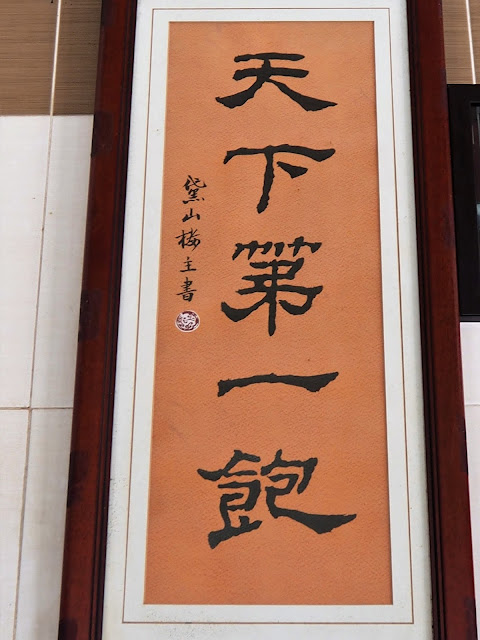 天下第一飽
黛山樓主書